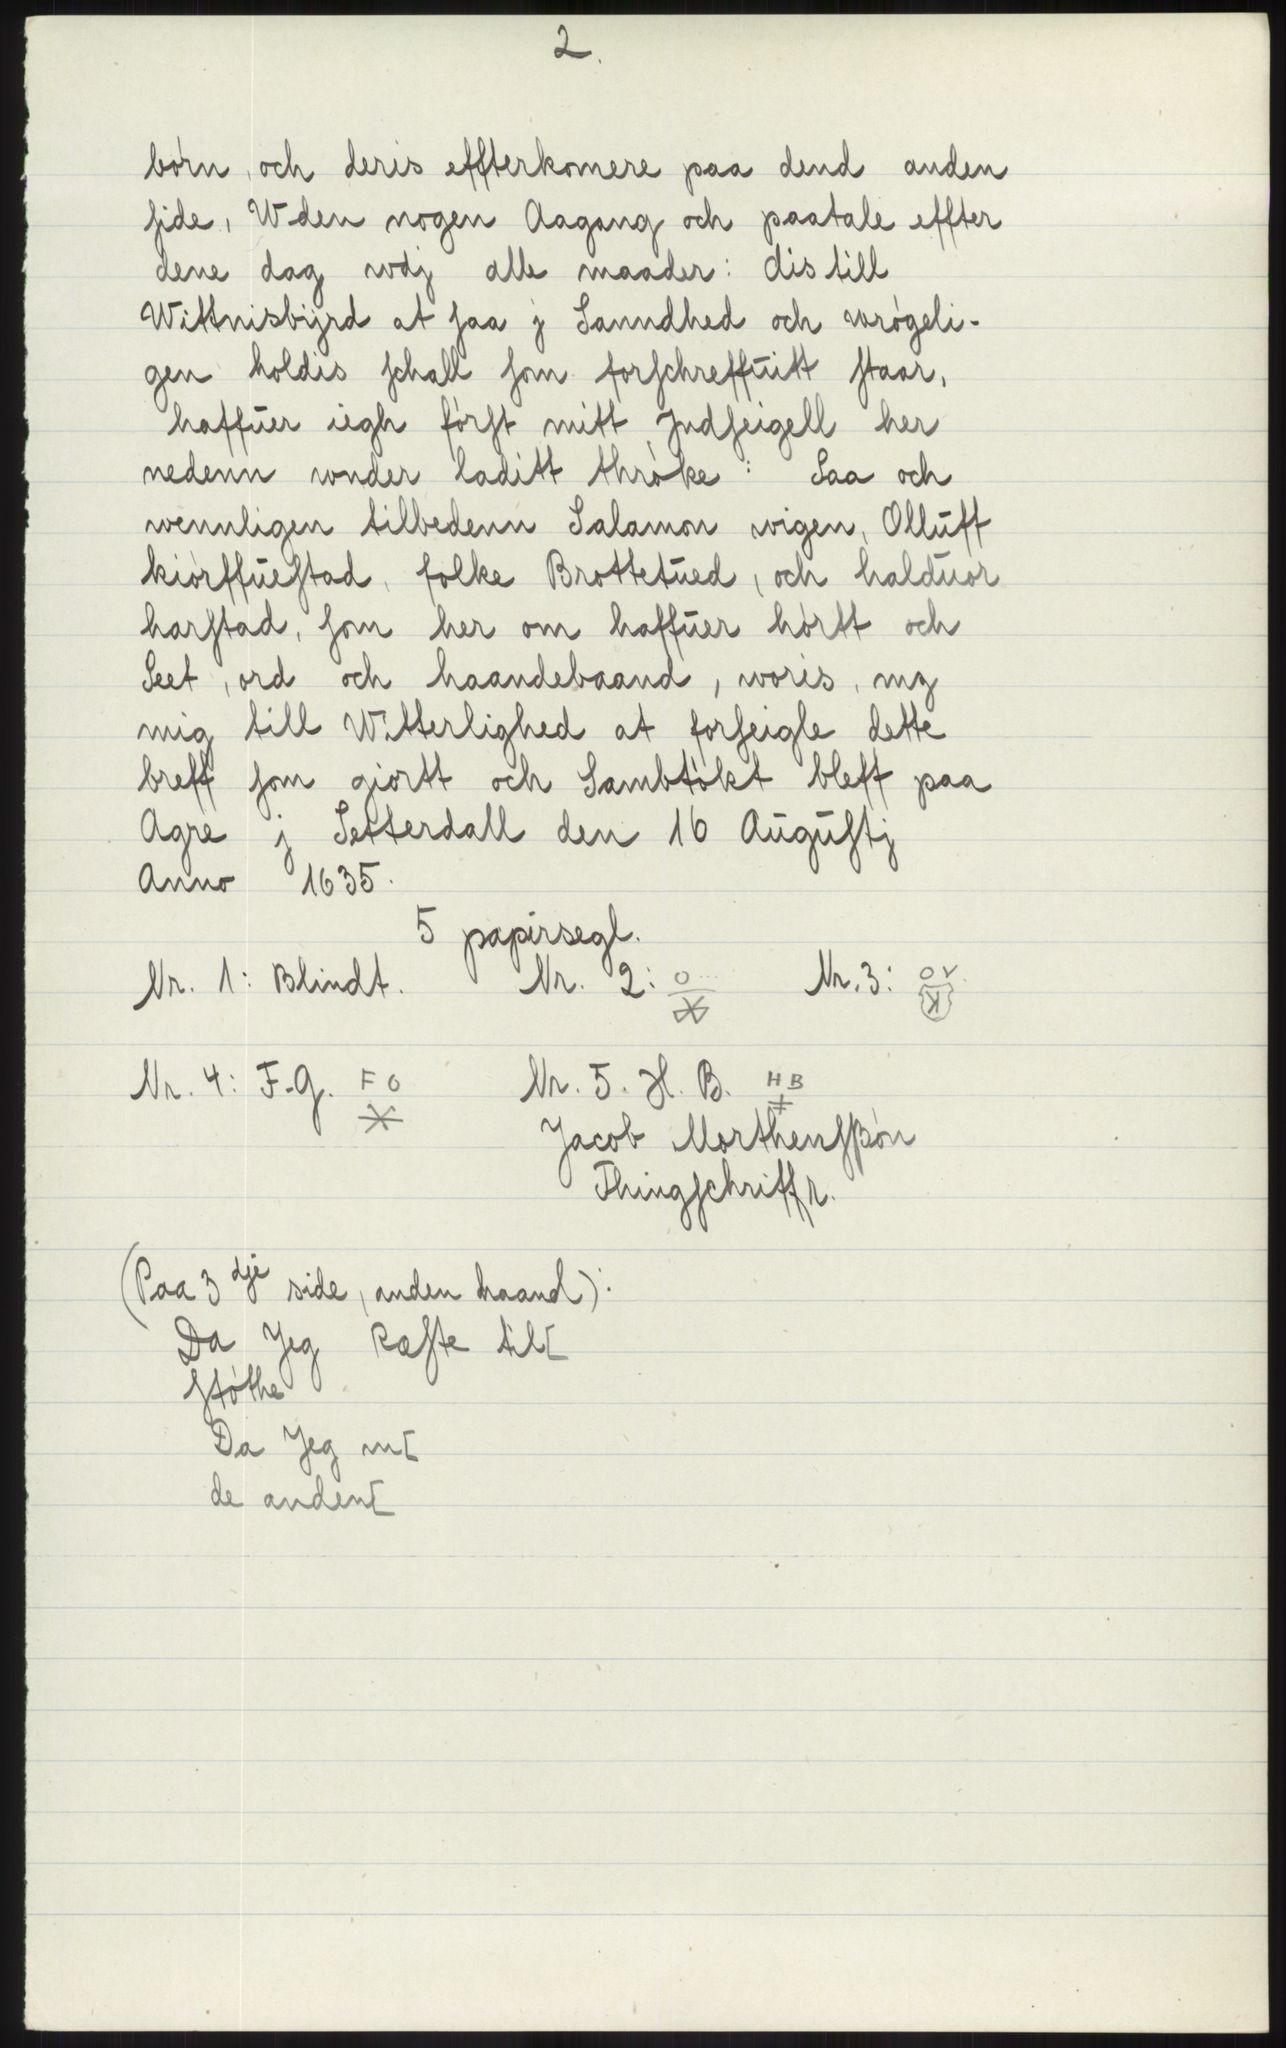 2.
börn, och deris effterkomere paa dend anden
side, Wden nogen Aagang och paatale effter
dene dag wdj alle maader: dis till
Wittnisbijrd at saa j Sanndhed och wrögeli-
gen holdis schall som forschreffuitt staar,
haffuer iegh först mitt Jndseigell her
nedenn wnder laditt thröke: Saa och
wennligen tilbedenn Salamon wigen, Olluff
kiörffuestad, folke Brottetued, och halduor
harstad, som her om haffuer hörtt och
Seet, ord och haandebaand, woris, mz
mig till Witterlighed at forseigle dette
breff som giortt och Sambtökt bleff paa
Agre j Setterdall den 16 Augustj
Anno 1635.
5 papirsegl.
Nr. 1: Blindt. Nr. 2: O... Nr. 3: OV K
Nr. 4: F.G. F G Nr. 5. H. B. H B
Jacob Morthensßön
Thingschriffr.
(Paa 3dje side, anden haand):
Da Jeg Ræste til[
stöthe
Da Jeg m[
de anden[